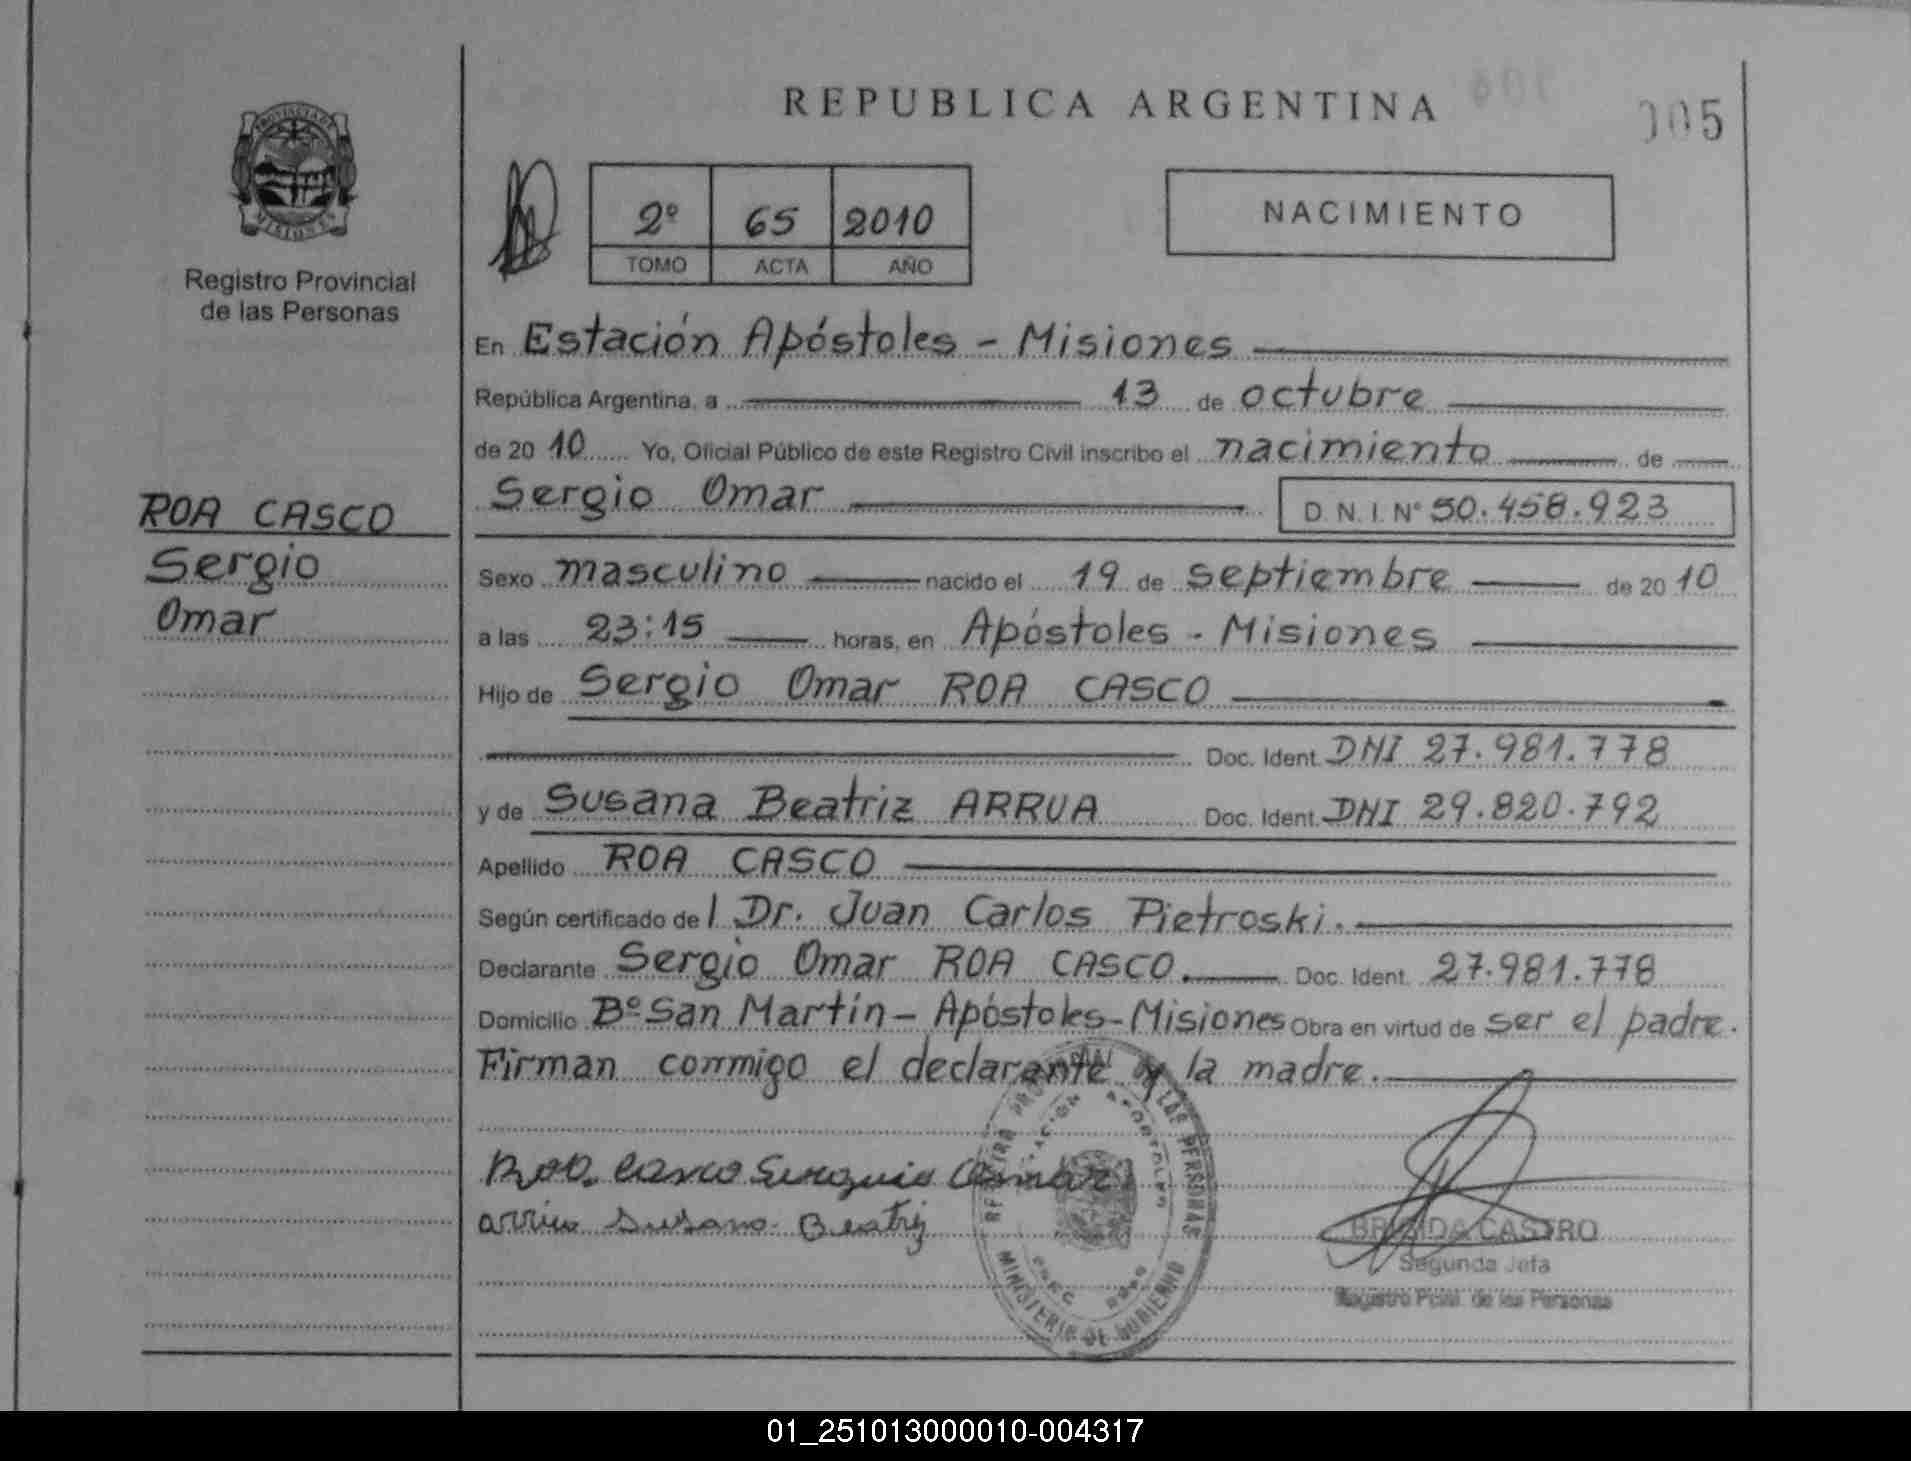 REPUBLICA ARGENTINA
005
PROVINCIA DE
MISIONES
Registro Provincial
de las Personas
2º 65 2010
TOMO ACTA AÑO
NACIMIENTO
En Estación Apóstoles - Misiones
República Argentina, a 13 de octubre
de 2010 Yo, Oficial Público de este Registro Civil inscribo el nacimiento de
Sergio Omar D.N.I. Nº 50.458.923
ROA CASCO
Sergio
Omar
Sexo masculino nacido el 19 de septiembre de 2010
a las 23:15 horas, en Apóstoles - Misiones
Hijo de Sergio Omar ROA CASCO
Doc. Ident. DNI 27.981.778
y de Susana Beatriz ARRUA Doc. Ident. DNI 29.820.792
Apellido ROA CASCO
Según certificado de l Dr. Juan Carlos Pietroski.
Declarante Sergio Omar ROA CASCO. Doc. Ident. 27.981.778
Domicilio Bº San Martín - Apóstoles - Misiones Obra en virtud de ser el padre.
Firman conmigo el declarante y la madre.
Roa Casco Serguio Omar
arrua Susana Beatriz
LAS PERSONAS
MINISTERIO DE GOBIERNO
BRIGIDA CASTRO
Segunda Jefa
Registro Pcial. de las Personas
01_251013000010-004317